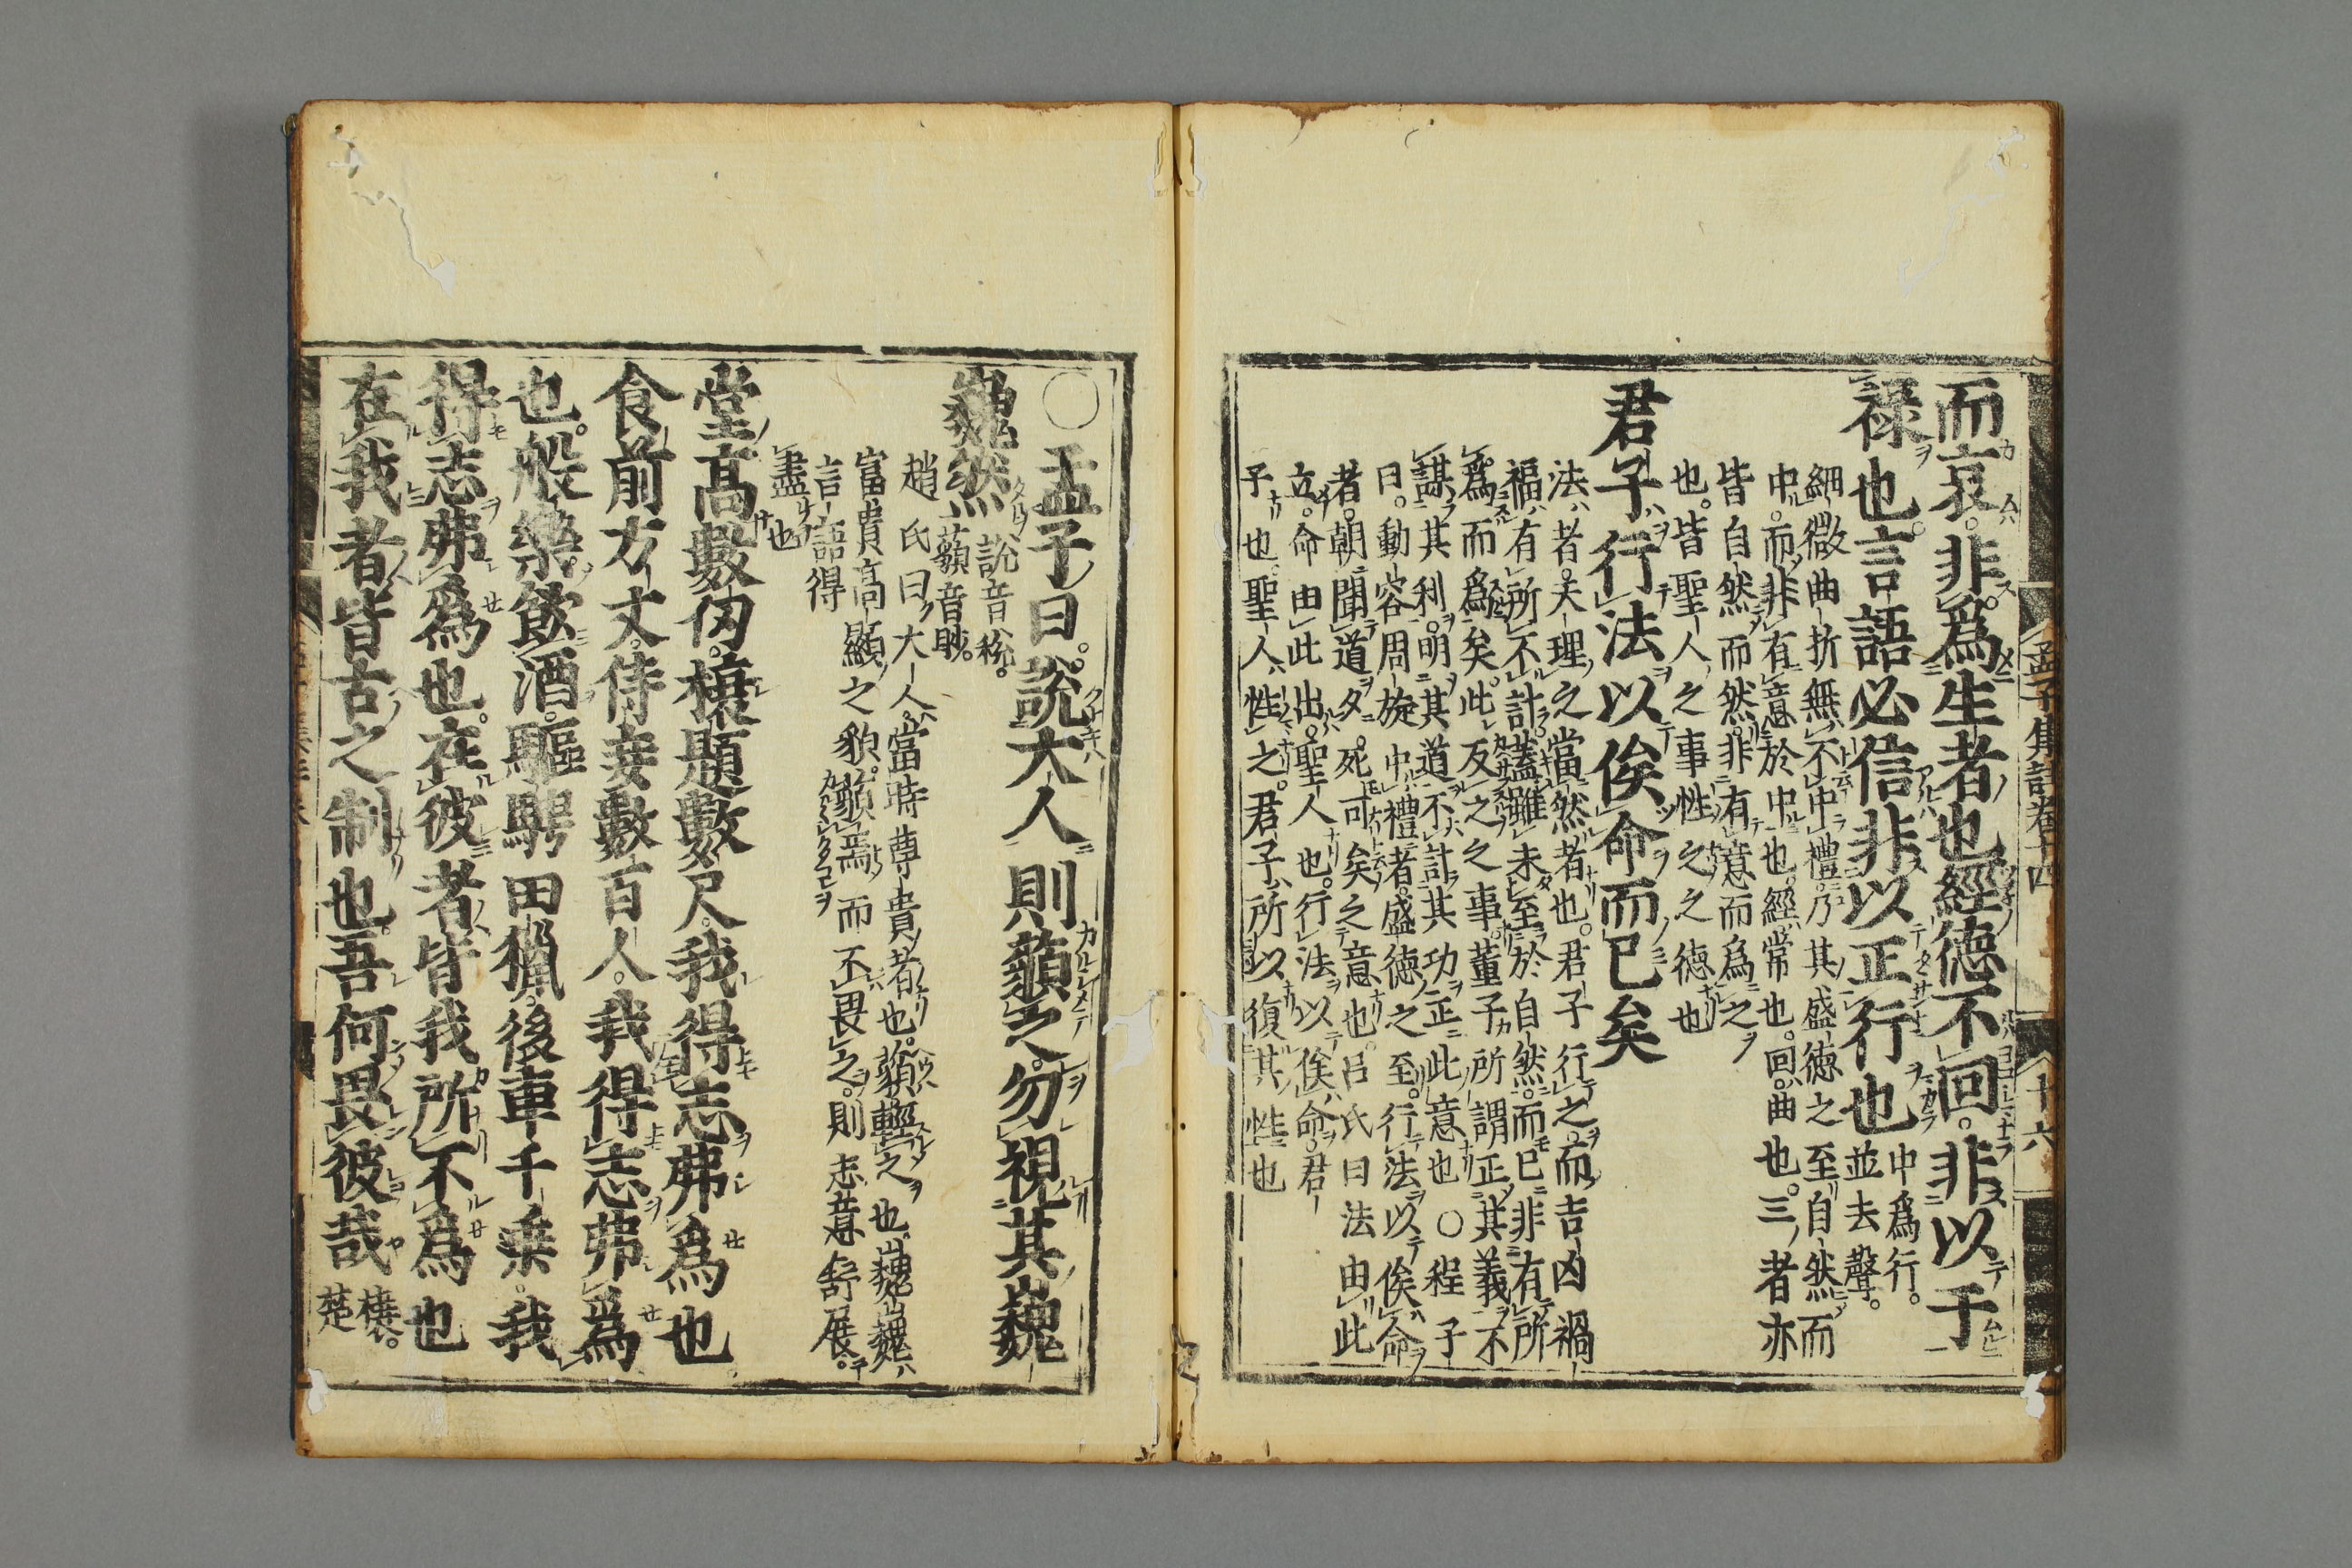 孟子集註卷十四
十六
而哀非爲生者也經德不回非以干
祿也言語必信非以正行也
中爲行。
並去聲。
細微曲折無不中禮。乃其盛德之至自然而
中。而非有意於中也。經常也。回曲也。三者亦
皆自然而然。非有意而爲之
也。皆聖人之事性之之德也
君子行法以俟命而已矣
法者。天理之當然者也。君子行之。而吉凶禍
福有所不計。蓋雖未至於自然。而已非有所
爲而爲矣。此反之之事。董子所謂正其義不
謀其利。明其道不計其功。正此意也○程子
曰。動容周旋中禮者。盛德之至。行法以俟命
者。朝聞道夕死可矣之意也。呂氏曰法由此
立。命由此出。聖人也。行法以俟命。君
子也聖人性之。君子所以復其性也
○孟子曰。說大人則藐之。勿視其巍
巍然
說音稅。
藐音眇。
趙氏曰大人。當時尊貴者也。藐輕之也。巍巍
富貴高顯之貌。藐焉而不畏之。則志意舒展。
言語得
盡也
堂高數仞。榱題數尺。我得志弗爲也
食前方丈。侍妾數百人。我得志弗爲
也。般樂飲酒。驅騁田獵。後車千乘。我
得志弗爲也。在彼者皆我所不爲也
在我者皆古之制也。吾何畏彼哉
榱。
楚